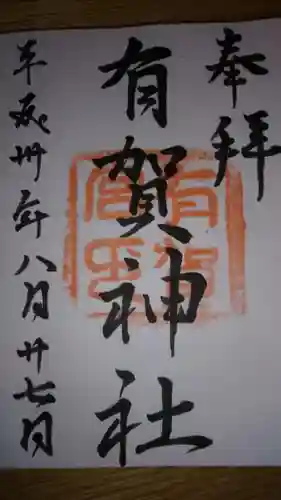 奉拝
有賀神社
平成卅年八月廿七日